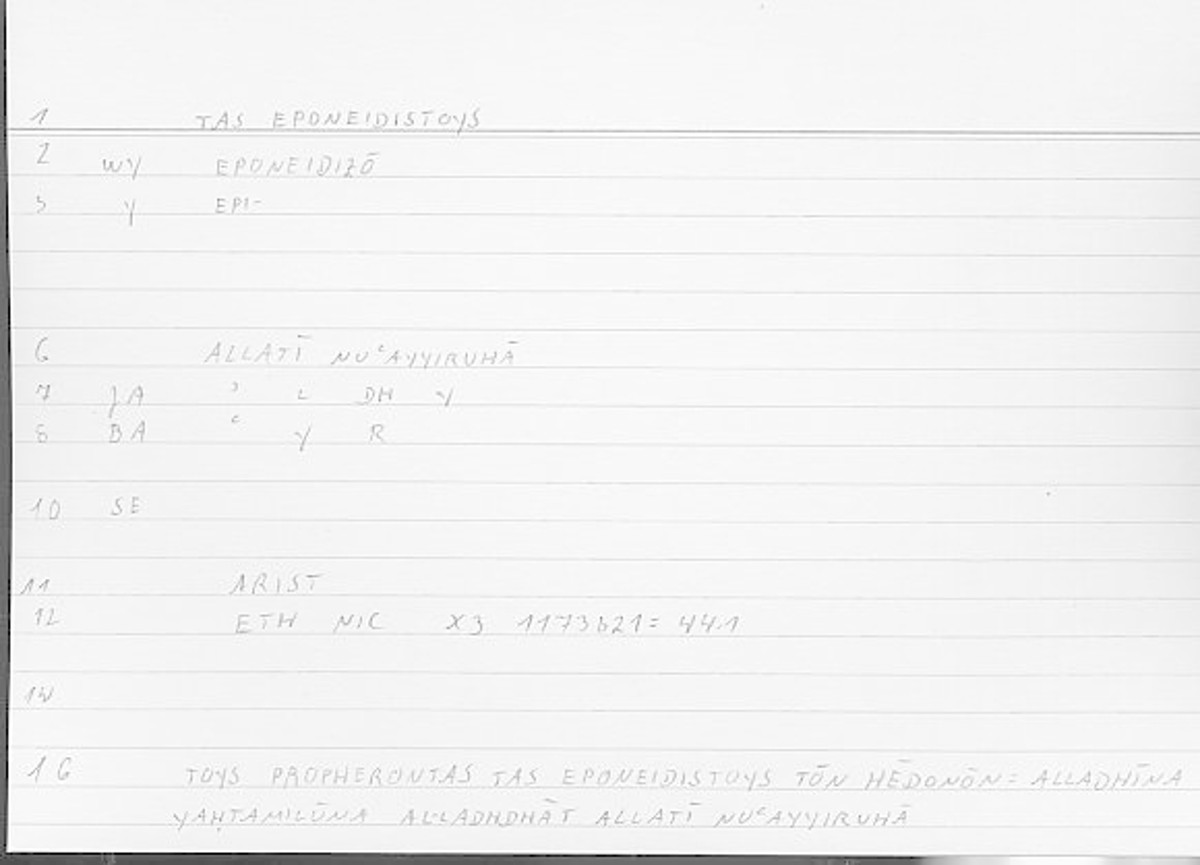 1 TAS EPONEIDISTOYS
2 WY EPONEIDIZŌ
3 Y EPI-
6 ALLATĪ NUʿAYYIRUHĀ
7 ʾ L DH Y
8 BA ʿ Y R
10 SE
11 ARIST
12 ETH NIC X3 1173b21= 441
14
16 TOYS PROPHERONTAS TAS EPONEIDISTOYS TŌN HĒDONŌN= ALLADHĪNA
YAḤTAMILŪNA AL-LADHDHĀT ALLATĪ NUʿAYYIRUHĀ